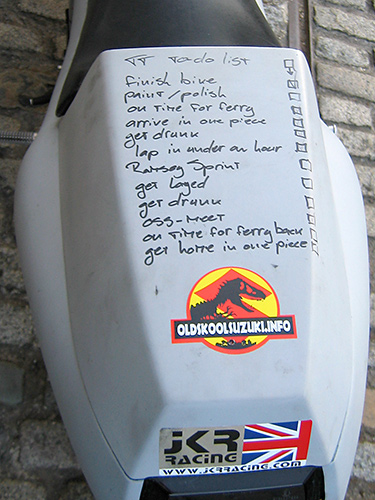 TT To do list
finish bike
paint/polish
on time for ferry
arrive in one piece
get drunk
lap in under an hour
Ramsey Sprint
get layed
get drunk
OSS-MEET
on time for ferry back
get home in one piece
OLDSKOOLSUZUKI.INFO
JKR
RACING
WWW.JKRRACING.COM